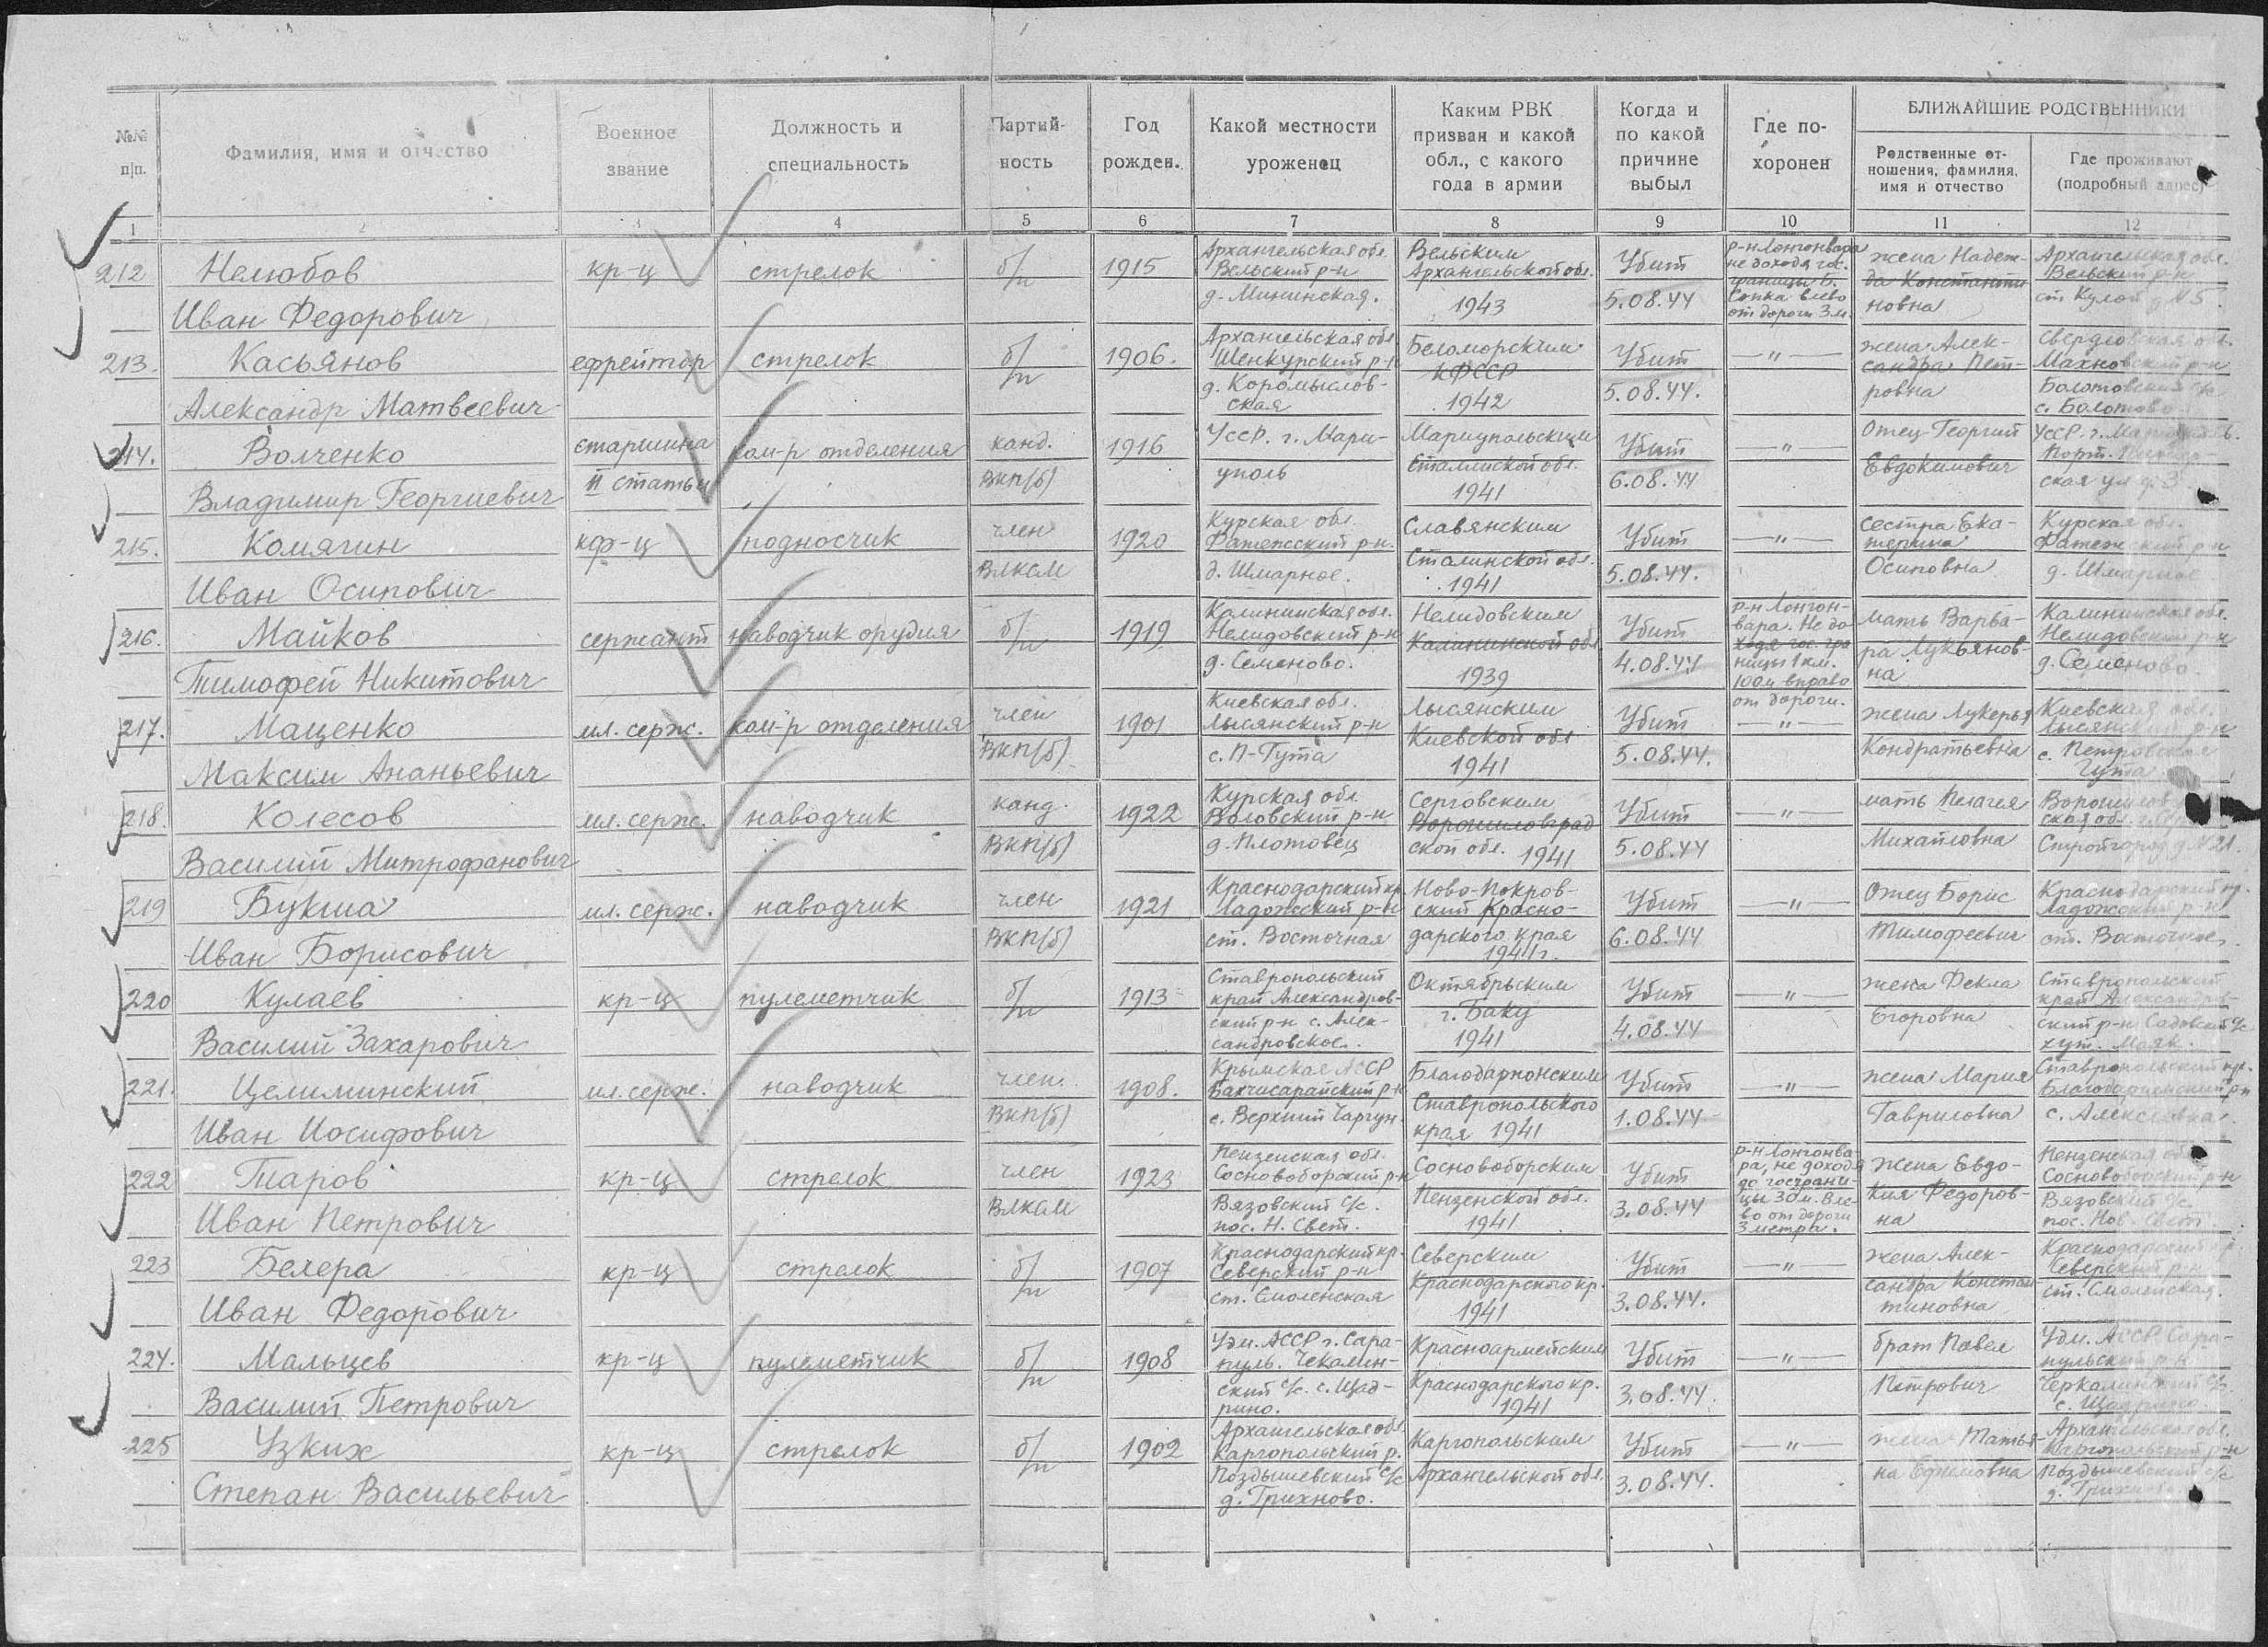 №№ п/п.
Фамилия, имя и отчество
Военное звание
Должность и специальность
Партийность
Год рожден.
Какой местности уроженец
Каким РВК призван и какой обл., с какого года в армии
Когда и по какой причине выбыл
Где похоронен
БЛИЖАЙШИЕ РОДСТВЕННИКИ
Родственные отношения, фамилия, имя и отчество
Где проживают (подробный адрес)
1 2 3 4 5 6 7 8 9 10 11 12
212 Нелюбов кр-ц стрелок б/п 1915 Архангельская обл. Вельским Убит р-н Лонгонвара жена Надеж- Архангельская обл.
Вельский р-н Архангельской обл. не доходя гос. да Константи- Вельский р-н
Иван Федорович д. Мининская. 1943 5.08.44 границы 6. Сопка влево от дороги 3 м. новна ст Кулой д N 5.
213. Касьянов ефрейтор стрелок б/п 1906. Архангельская обл Беломорским Убит —"— жена Алек- Свердловская обл.
Шенкурский р-н КФССР сандра Пет- Махновский р-н
Александр Матвеевич д. Коромыслов- 1942 5.08.44. ровна Болотовский с/с
ская с. Болотово
214. Волченко старшина ком-р отделения канд. 1916 УССР. г. Мари- Мариупольским Убит —"— Отец Георгий УССР. г.
Владимир Георгиевич II статьи ВКП(б) уполь Сталинской обл. 1941 6.08.44 Евдокимович Порт. ская ул д. 3
215. Комягин кф-ц подносчик член 1920 Курская обл. Славянским Убит —"— сестра Ека- Курская обл.
Фатежский р-н. Сталинской обл. терина Фатежский р-н
Иван Осипович ВЛКСМ д. Шмарное. 1941 5.08.44. Осиповна д. Шмарное
216. Майков сержант наводчик орудия б/п 1919 Калининская обл. Нелидовским Убит р-н Лонгон- мать Варва- Калининская обл.
Нелидовский р-н Калининской обл вара. Не до- ра Лукьянов- Нелидовский р-н
Тимофей Никитович д. Семеново. 1939 4.08.44 ходя гос. границы 1 км. 100 м вправо от дороги. на д. Семеново.
217. Маценко мл. серж. ком-р отделения член 1901 Киевская обл. Лысянским Убит —"— жена Лукерья Киевская обл.
Лысянский р-н Киевской обл Лысянский р-н
Максим Ананьевич ВКП(б) с. П-Гута 1941 5.08.44. Кондратьевна с. Петровская Гута
218. Колесов мл. серж. наводчик канд. 1922 Курская обл. Серговским Убит —"— мать Пелагея Ворошилов
Воловский р-н Ворошиловград ская обл.
Василий Митрофанович ВКП(б) д. Плотовец ской обл. 1941 5.08.44 Михайловна Стройгород д N 21.
219 Букша мл. серж. наводчик член 1921 Краснодарский кр. Ново-Покров- Убит —"— Отец Борис Краснодарский кр.
Ладожский р-н ский Красно- Ладожский р-н
Иван Борисович ВКП(б) ст. Восточная дарского края 1941 г. 6.08.44 Тимофеевич ст. Восточное
220 Кулаев кр-ц пулеметчик б/п 1913 Ставропольский Октябрьским Убит —"— жена Фекла Ставропольский
край Александров- г. Баку край Александров-
Василий Захарович ский р-н с. Алек- 1941 4.08.44 Егоровна ский р-н Садовский с/с
сандровское. хут. Маяк.
221. Целиминский мл. серж. наводчик член. 1908. Крымская АССР Благодарнонским Убит —"— жена Мария Ставропольский кр.
Бахчисарайский р-н Ставропольского Благодарненский р-н
Иван Иосифович ВКП(б) с. Верхний Чаргун. края 1941 1.08.44 Гавриловна с. Алексеевка
222 Таров кр-ц стрелок член 1923 Пензенская обл. Сосновоборским Убит р-н Лонгонва- жена Евдо- Пензенская об
Сосновоборский р-н ра, не доходя кия Федоров- Сосновоборский р-н
Иван Петрович ВЛКСМ Вязовский с/с. Пензенской обл. 1941 3.08.44 до госграни- цы 30 м. Вле- во от дороги 3 метра. на Вязовский с/с
пос. Н. Свет. пос. Нов. Свет.
223 Белера кр-ц стрелок б/п 1907 Краснодарский кр. Северским Убит —"— жена Алек- Краснодарский кр.
Северский р-н Краснодарского кр. сандра Констан- Северский р-н
Иван Федорович ст. Смоленская 1941 3.08.44. тиновна ст. Смоленская.
224. Мальцев кр-ц пулеметчик б/п 1908 Удм. АССР г. Сара- Красноармейским Убит —"— брат Павел Удм. АССР Сара-
пуль. Чекалин- Краснодарского кр. пульский р-н
Василий Петрович ский с/с. с. Щад- 1941 3.08.44. Петрович с/с.
рино. с. Щадрино
225 Узких кр-ц стрелок б/п 1902 Архангельская обл. Каргопольским Убит —"— жена Татья- Архангельская обл.
Каргопольский р. Архангельской обл. Каргопольский р-н
Степан Васильевич Поздышевский с/с 3.08.44. на Ефимовна Поздышевский с/с
д. Трихново. д. Трихново